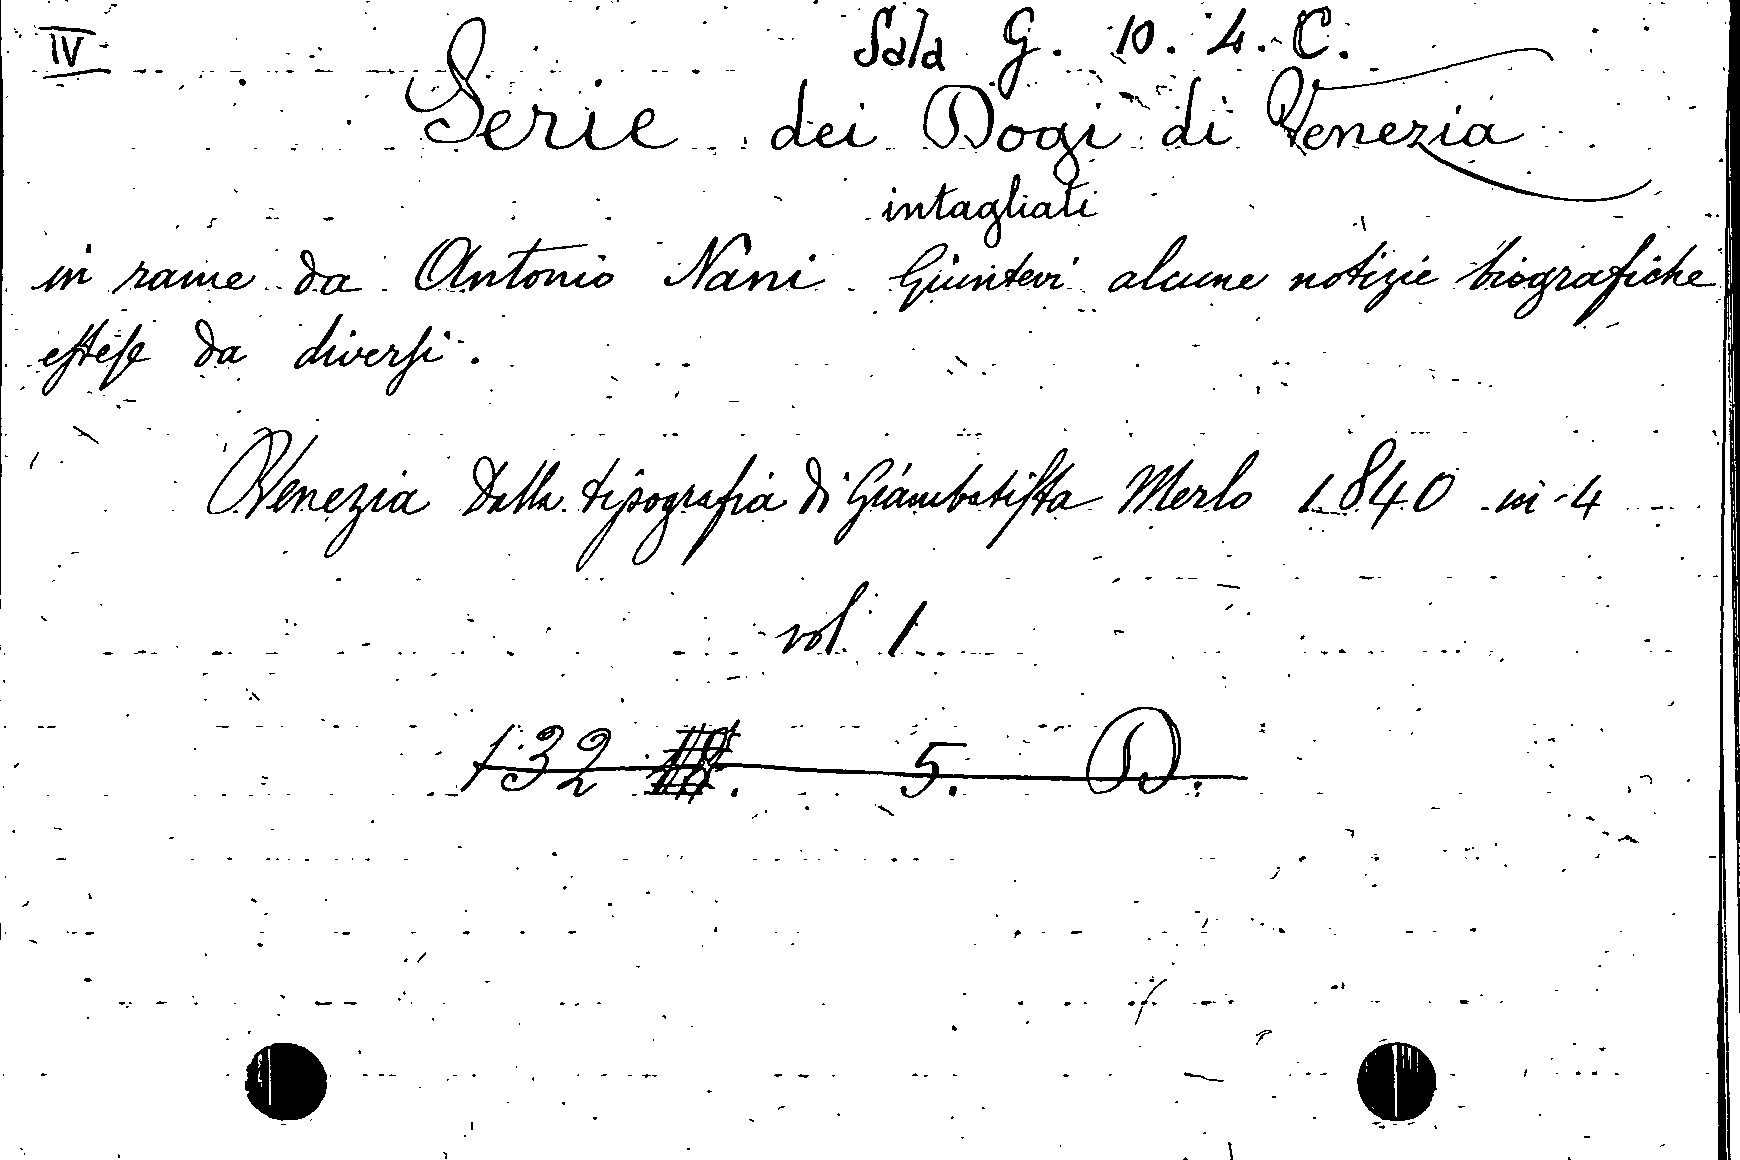 IV
Sala G. 10. 4. C.
Serie dei Dogi di Venezia
intagliati
in rame da Antonio Nani. Giuntevi alcune notizie biografiche
estese da diversi.
Venezia Dalla tipografia di Giambatista Merlo 1840 in-4
vol. 1
132 5. D.